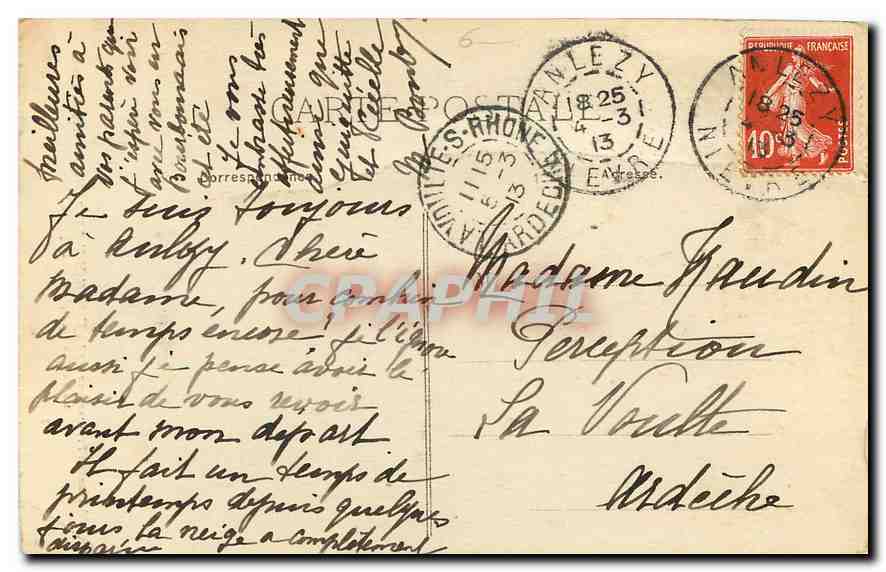 CARTE POSTALE
Correspondance
Adresse.
Je suis toujours
à Anlezy. Chère
Madame, pour combien
de temps encore! je l'ignore
aussi je pense avoir le
plaisir de vous revoir
avant mon départ
Il fait un temps de
printemps depuis quelques
jours la neige a complètement
disparu
Meilleures
amitiés à
vos parents que
j'espère voir
avec vous en
Bourbonnais
l'été
Je vous
embrasse très
affectueusement
ainsi que
et
M.
Madame Naudin
Perception
La Voulte
Ardèche
ANLEZY
18 25
4 -3
13
NIEVRE
LA VOULTE-S-RHONE
11 15
5 -3
13
ARDECHE
REPUBLIQUE FRANÇAISE
10c
POSTES
ANLEZY
18 25
NIEVRE
CPAPHIL